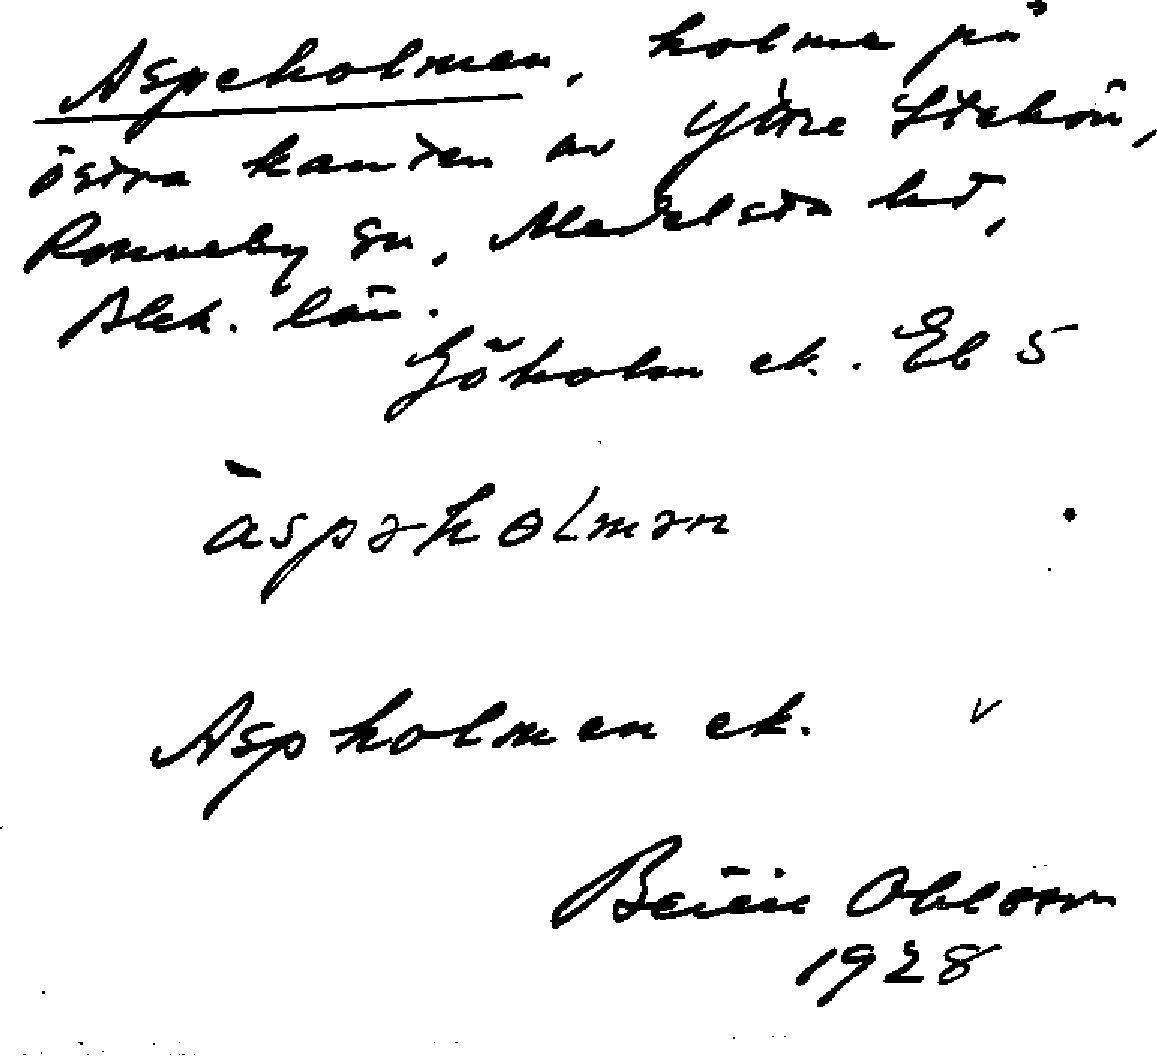 Aspeholmen, holme på
östra kanten av Yttre Stekön,
Ronneby sn, Medelsta hd,
Blek. län.
Göholm ek. Eb 5
àspəholmən
Aspholmen ek.
Bertil Ohlsson
1928